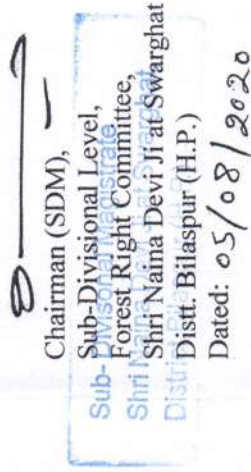 Chairman (SDM),
Sub-Divisional Level,
Forest Right Committee,
Shri Naina Devi Ji at Swarghat
Distt. Bilaspur (H.P.)
Dated: 05/08/2020
Sub-Divisonal Magistrate
Shri Naina Devi Ji at Swarghat
District Bilaspur (H.P.)